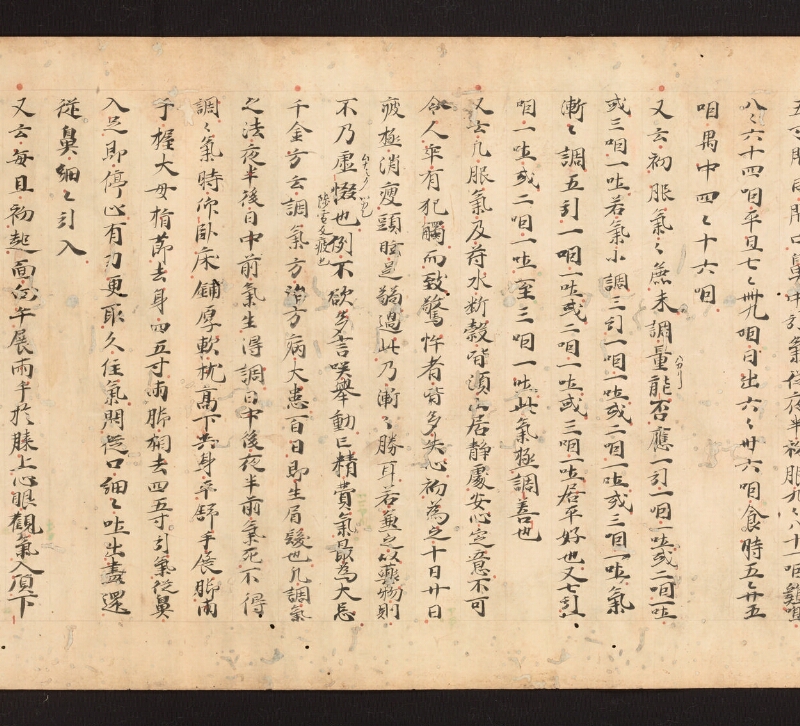 八〻六十四咽平旦七〻卌九咽日出六〻卅六咽食時五〻廿五
咽禺中四〻十六咽
又云初服氣〻麁未調量能否應一引一咽一吐或二咽一吐
或三咽一吐若氣小調三引一咽一吐或二咽一吐或三咽一吐氣
漸〻調五引一咽一吐或二咽一吐或三咽一吐居平好也又七引
咽一吐或二咽一吐至三咽一吐此氣極調善也
又云凡服氣及符水斷穀皆須山居静處安心定意不可
令人卒有犯觸而致驚忤者皆多失心初為之十日廿日
疲極消瘦頭眩足弱過此乃漸〻勝耳若兼之以藥物則
不乃虛惙也例不欲多言咲舉動亡精費氣最為大忌
千金方云調氣方治万病大患百日即生眉髮也凡調氣
之法夜半後日中前氣生得調日中後夜半前氣死不得
調〻氣時仰臥床鋪厚軟枕高下共身平舒手展腳兩
手握大母指節去身四五寸兩腳相去四五寸引氣從鼻
入足即停止有力更取久住氣悶從口細〻吐出盡還
從鼻細〻引入
又云每旦初起面向午展兩手於膝上心眼觀氣入頂下